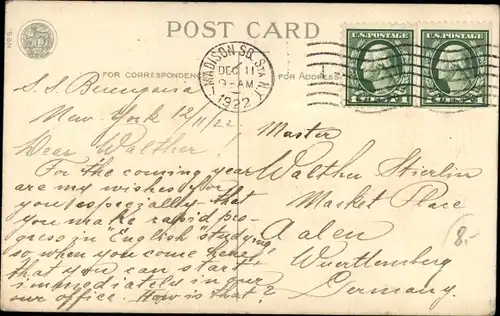 POST CARD
No 5.
U.S. POSTAGE
U.S. POSTAGE
1 CENT 1
1 CENT 1
MADISON SQ. STA. N.Y.
DEC 11
9-AM
1922
FOR CORRESPONDENCE
FOR ADDRESS
S. S. Berengaria
New York 12/11/22
Dear Walther
For the coming year
are my wishes for
you especially - that
you make rapid pro-
gress in "English" studying
so when you come here
that you can start
immediately in our
our office. How is that?
Master
Walther Stierlin
Market Place
Aalen
Wuerttemberg
Germany.
8.-